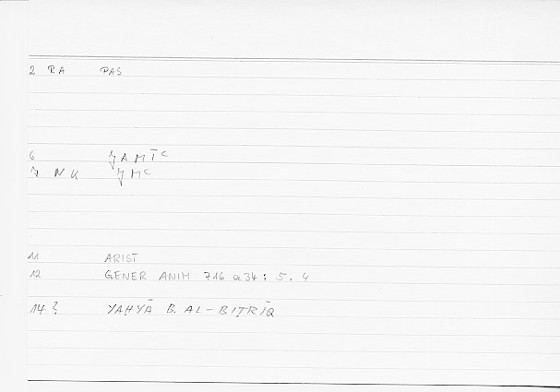 2 RA PAS
6 ǦAMĪᶜ
7 NK ǦMᶜ
11 ARIST
12 GENER ANIM 716 a34 : 5.4
14 ? YAḤYĀ B. AL-BIṬRĪQ